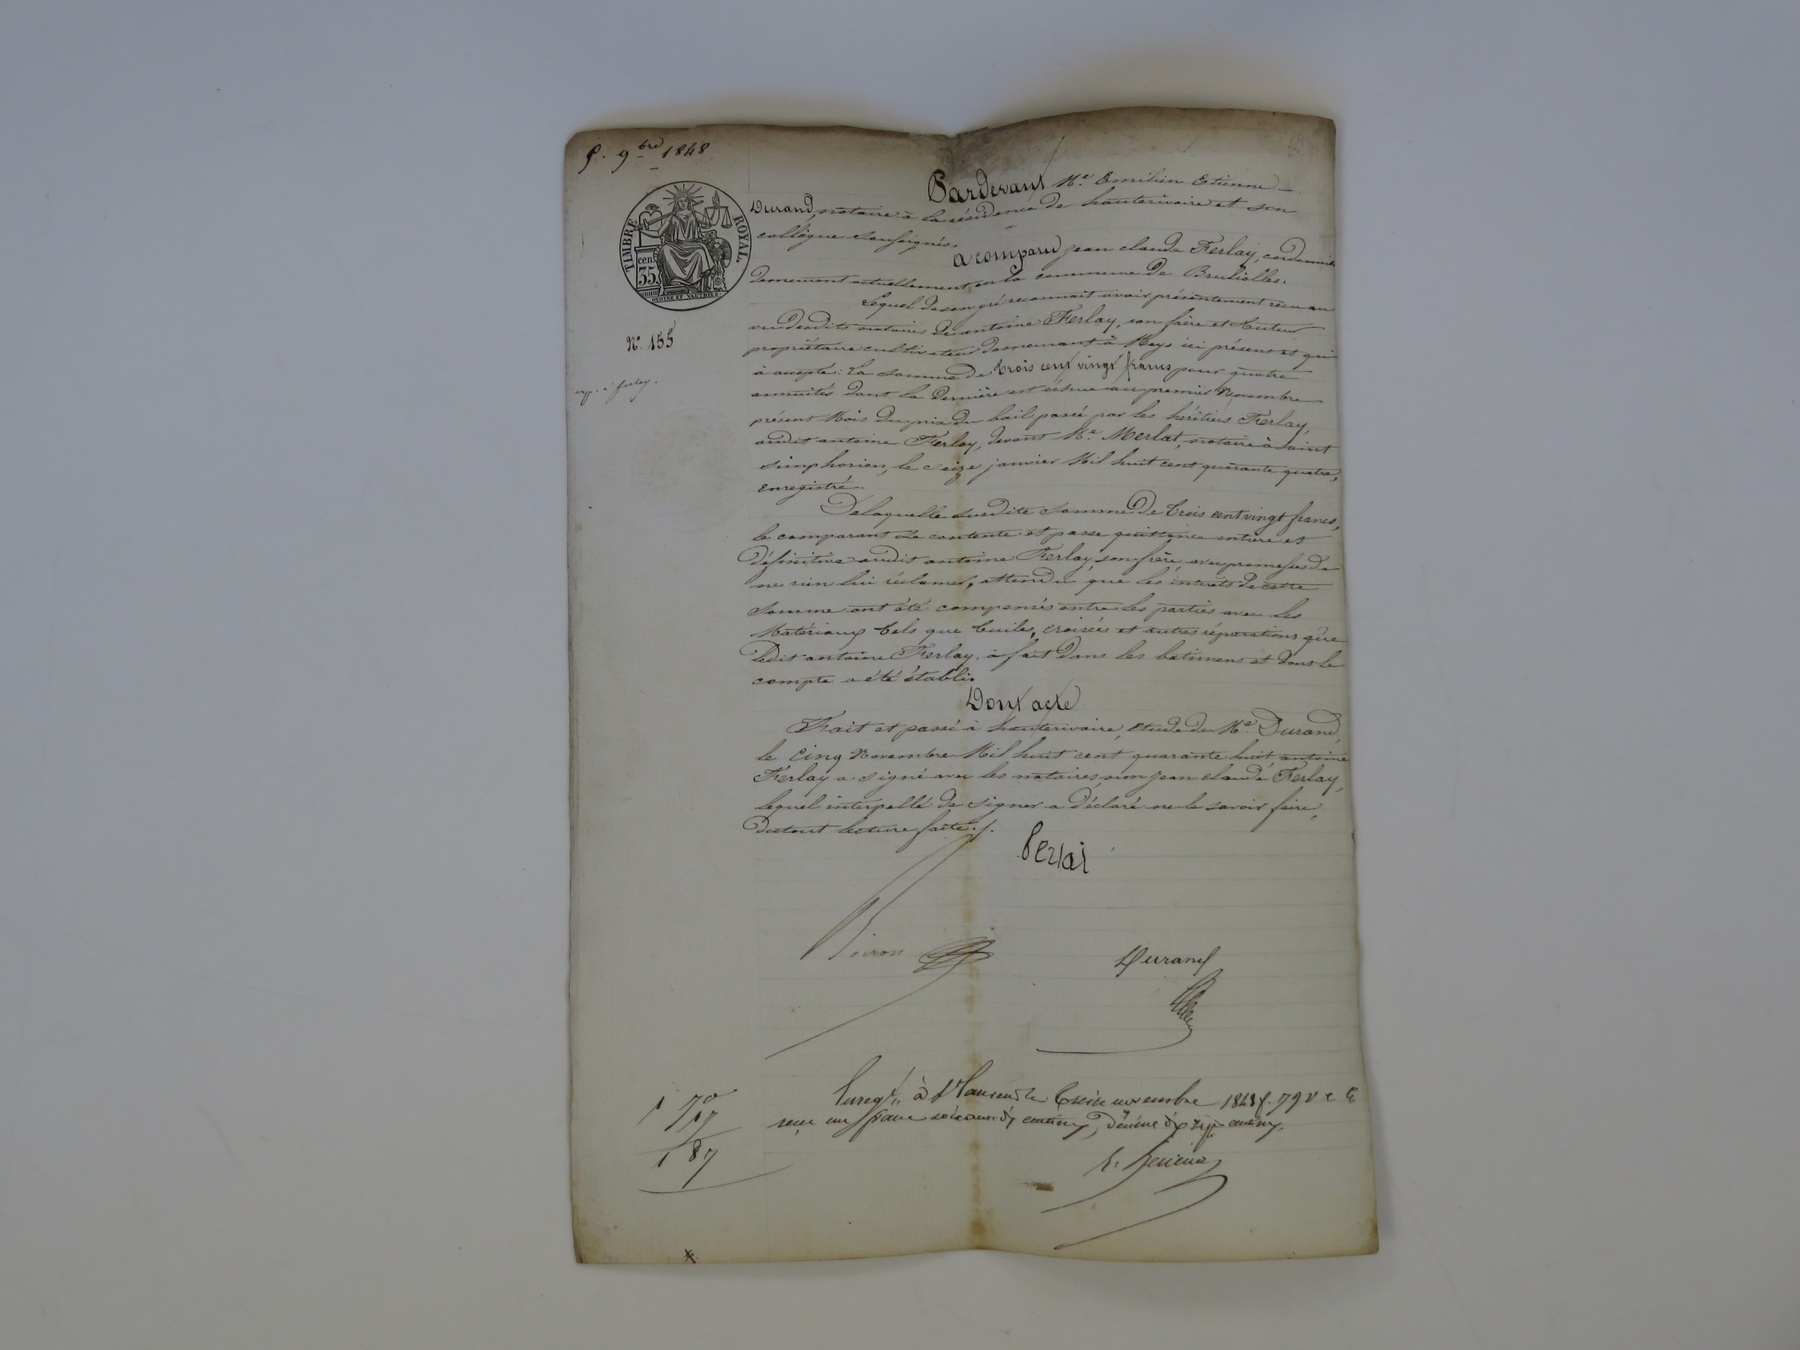 5. 9bre 1848
TIMBRE ROYAL
35 cen
N° 155
exp. à ferlay.
Pardevant Me Emilien Etienne
Durand, notaire à la résidence de hauterivoire et son
collègue soussignés.
a comparu jean claude Ferlay, cordonnier
demeurant actuellement en la commune de Brulioles.
Lequel de son gré reconnait avoir présentement reçu au
vu desdits notaires de antoine Ferlay, son frère et tuteur
propriétaire cultivateur demeurant à Meys ici présent et qui
à accepte: La somme de trois cent vingt francs pour quatre
annuités dont la dernière est échue au premier Novembre
présent Mois du prix du bail passé par les héritiers Ferlay,
audit antoine Ferlay, devant Me Merlat, notaire à saint
simphorien, le janvier Mil huit cent quarante quatre,
enregistré.
De laquelle susdite somme de trois cent vingt francs,
le comparant se contente et passe quittance entière et
définitive audit antoine Ferlay, son frère avec promesse de
ne rien lui réclamer, attendu que les intérêts de cette
somme ont été compensés entre les parties avec les
Matériaux tels que tuiles, croisées et autres réparations que
ledit antoine Ferlay, à fait dans les batimens et dont le
compte a été établi.
Dont acte
Fait et passé à hauterivoire, étude de Me Durand,
le cinq Novembre Mil huit cent quarante huit antoine
Ferlay a signé avec les notaires, non jean claude Ferlay,
lequel interpellé de signer a déclaré ne le savoir faire,
du tout lecture faite./.
ferlai
Durand
Enregt. à St Laurent le treize novembre 1848 f. 79 v c
reçu un franc soixante dix centimes, décime dix sept centimes.
1 70
17
1 87